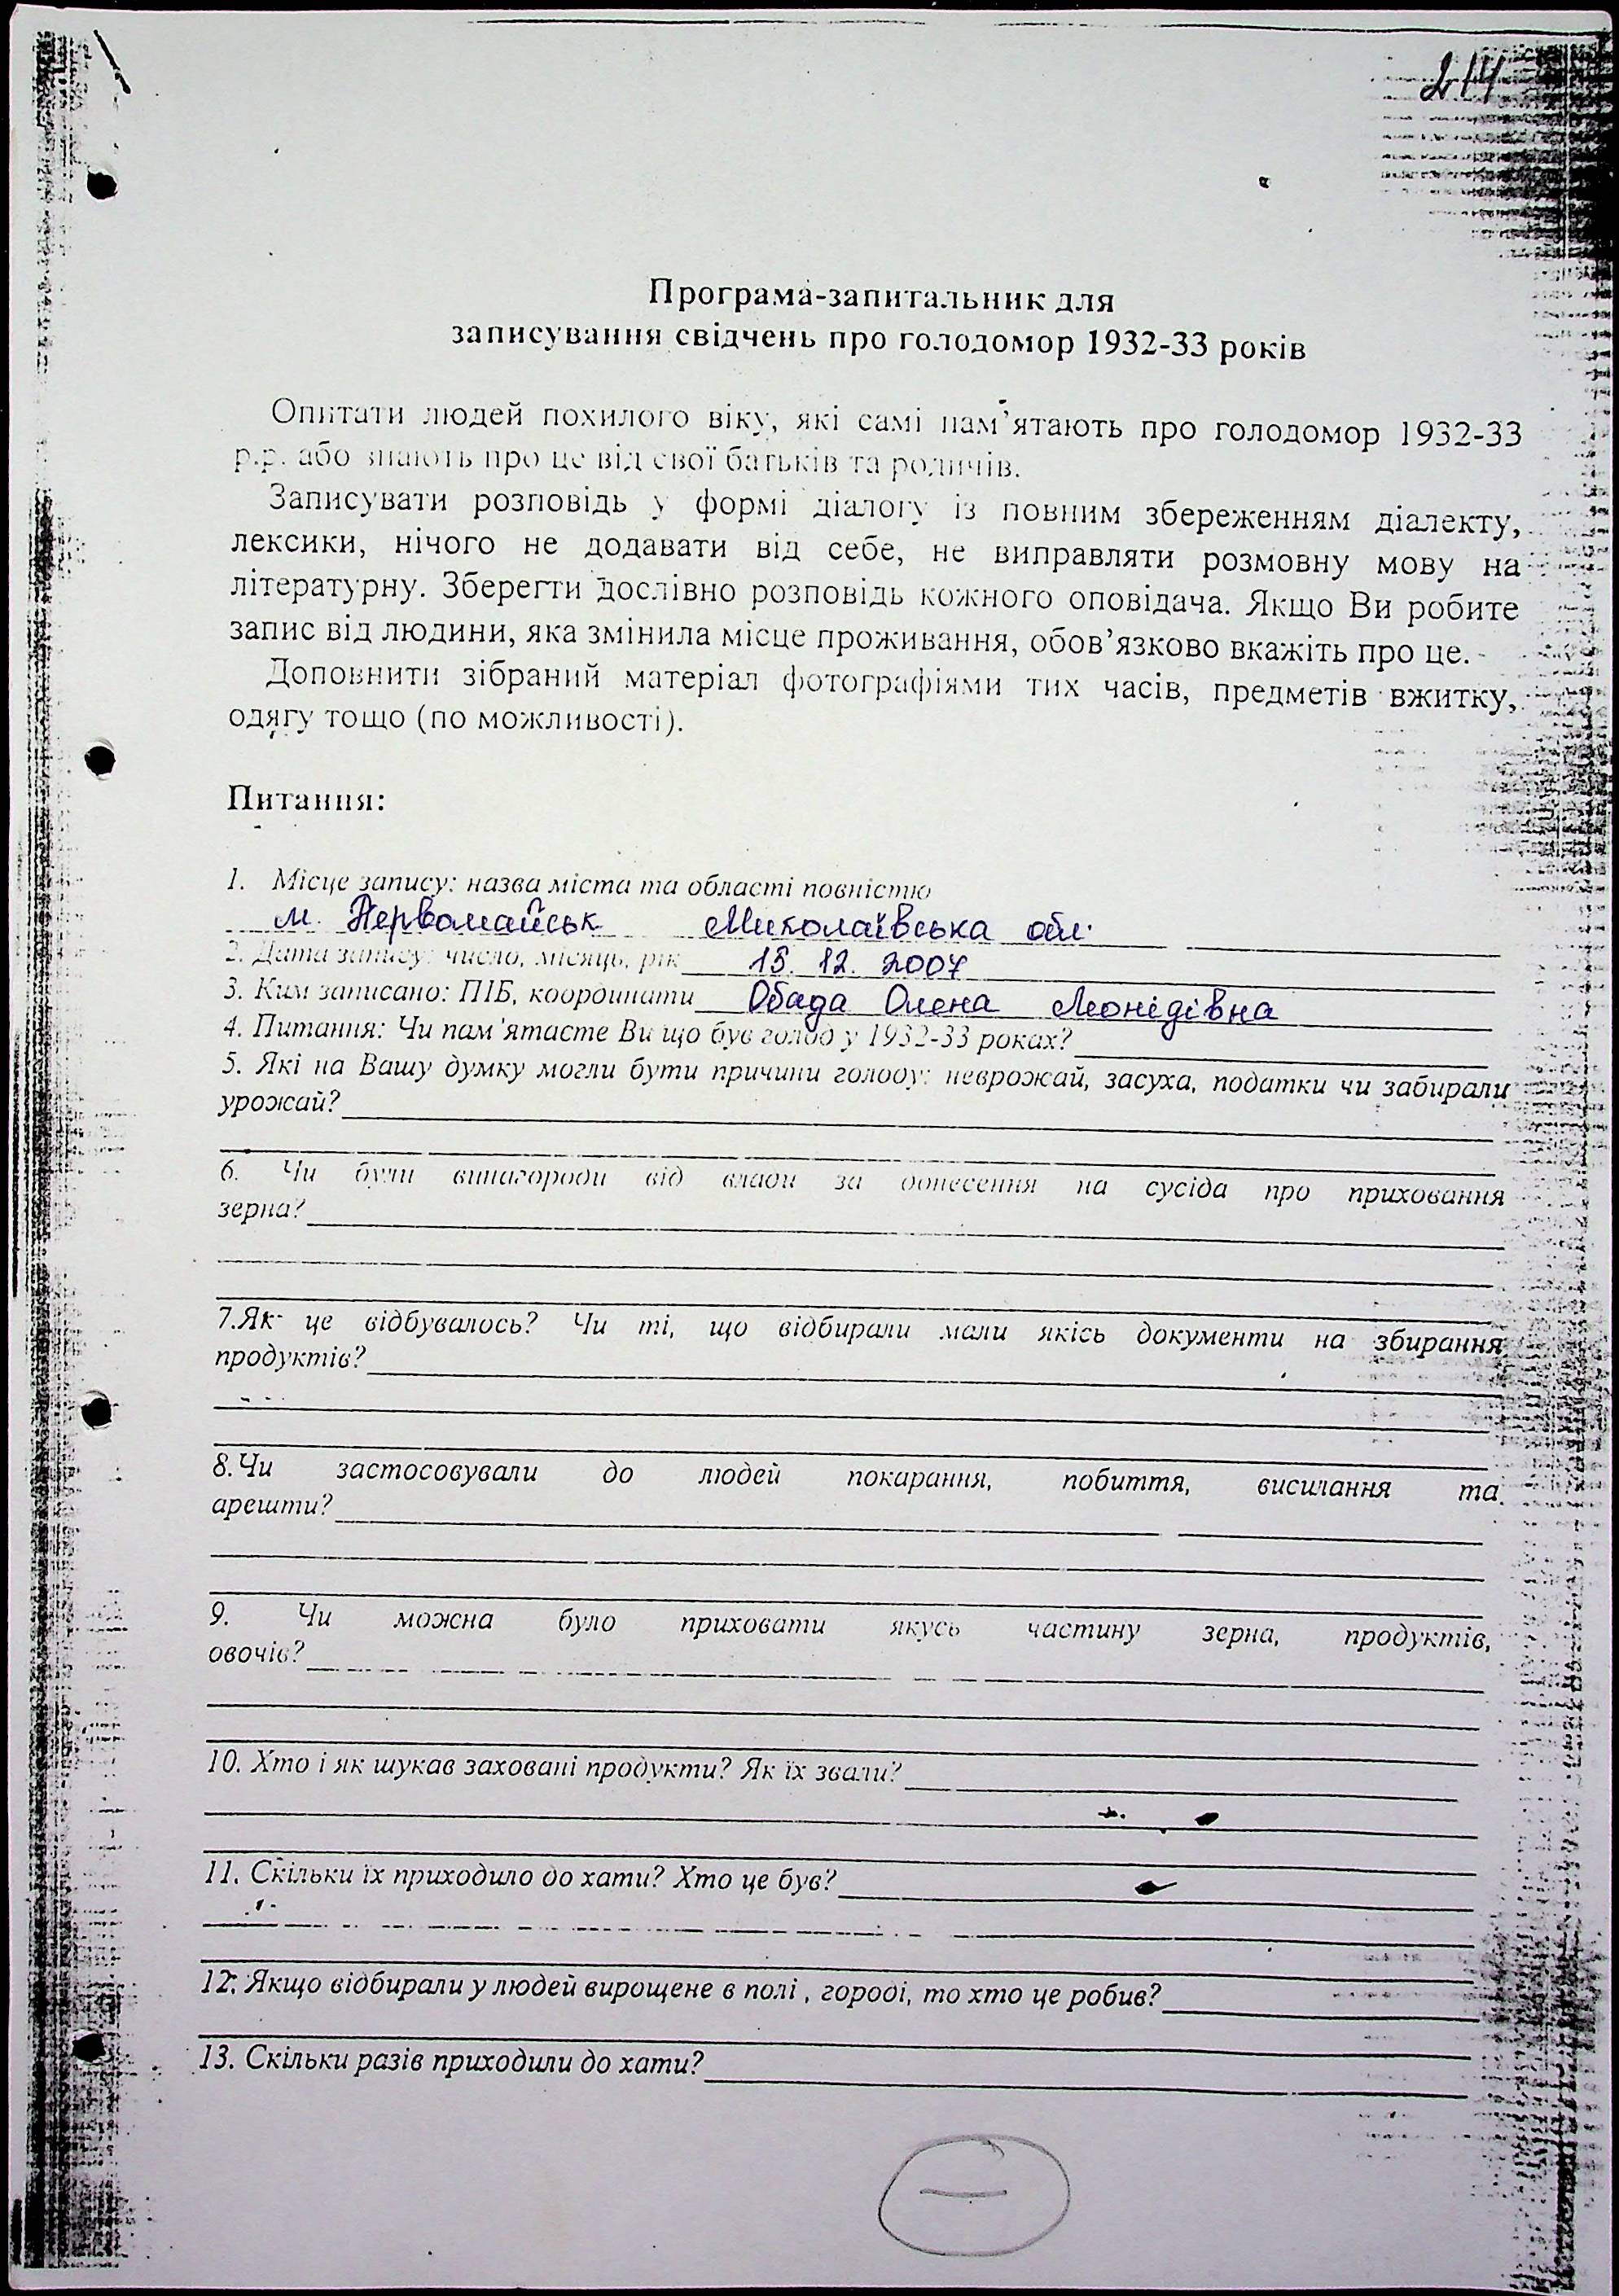 214
Програма-запитальник для
записування свідчень про голодомор 1932-33 років
Опитати людей похилого віку, які самі пам’ятають про голодомор 1932-33
р.р. або знають про це від свої батьків та родичів.
Записувати розповідь у формі діалогу із повним збереженням діалекту,
лексики, нічого не додавати від себе, не виправляти розмовну мову на
літературну. Зберегти дослівно розповідь кожного оповідача. Якщо Ви робите
запис від людини, яка змінила місце проживання, обов’язково вкажіть про це.
Доповнити зібраний матеріал фотографіями тих часів, предметів вжитку,
одягу тощо (по можливості).
Питання:
1. Місце запису: назва міста та області повністю
м. Первомайськ Миколаївська обл.
2. Дата запису: число, місяць, рік 15. 12. 2007
3. Ким записано: ПІБ, координати Обада Олена Леонідівна
4. Питання: Чи пам’ятаєте Ви що був голод у 1932-33 роках?
5. Які на Вашу думку могли бути причини голоду: неврожай, засуха, податки чи забирали
урожай?
6. Чи були винагороди від влади за донесення на сусіда про приховання
зерна?
7.Як це відбувалось? Чи ті, що відбирали мали якісь документи на збирання
продуктів?
8.Чи застосовували до людей покарання, побиття, висилання та
арешти?
9. Чи можна було приховати якусь частину зерна, продуктів,
овочів?
10. Хто і як шукав заховані продукти? Як їх звали?
11. Скільки їх приходило до хати? Хто це був?
12. Якщо відбирали у людей вирощене в полі , городі, то хто це робив?
13. Скільки разів приходили до хати?